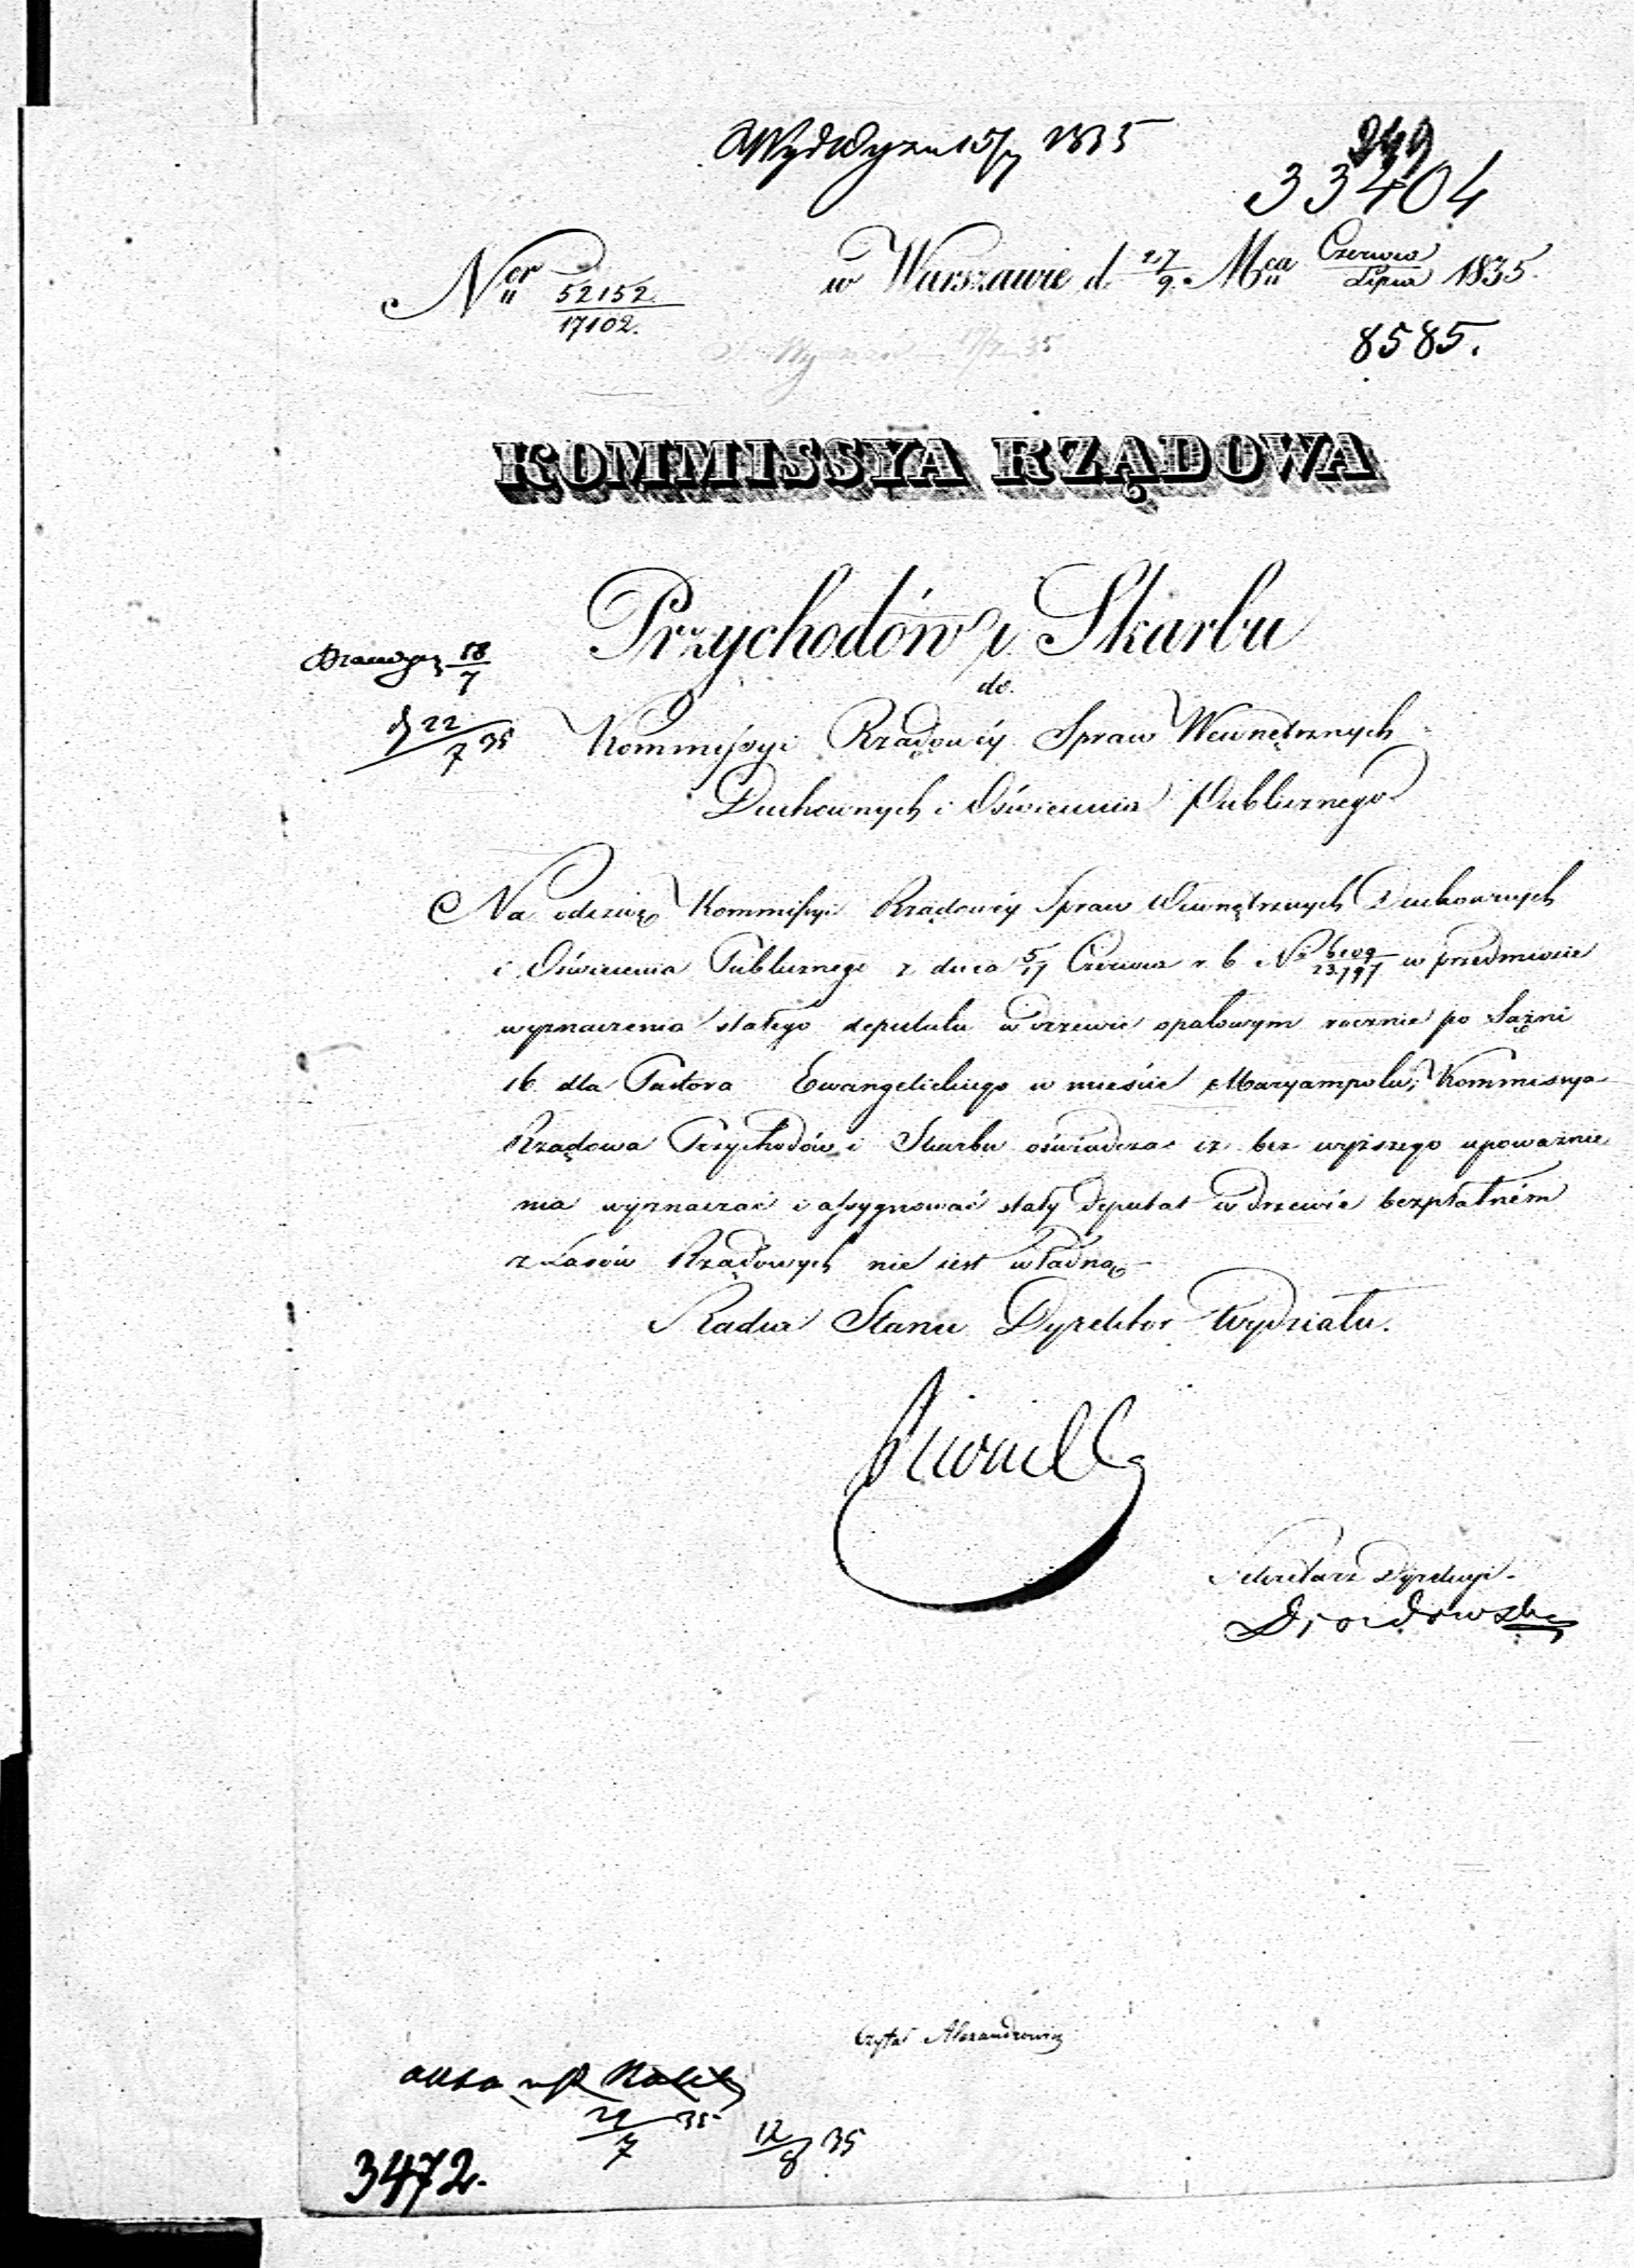 15/7 1835
249
33404
Ner 52152/17102.
w Warszawie d. 27/9. Mca Czerwca/Lipca 1835.
8585.
KOMMISSYA RZĄDOWA
Przychodów i Skarbu
18/7
do.
22/7 35
Kommissyi Rządowéy Spraw Wewnętrznych
Duchownych i Oświecenia Publicznego
Na odezwę Kommissyi Rządowéy Spraw Wewnętrznych Duchownych
i Oświecenia Publicznego z dnia 5/17 Czerwca r. b. No 6109/23.797 w przedmiocie
wyznaczenia stałego deputatu w drzewie opałowym rocznie po Sążni
16 dla Pastora Ewangelickiego w mieście Maryampolu, Kommissya
Rządowa Przychodów i Skarbu oświadcza iż bez wyższego upoważnie
nia wyznaczać i assygnować stały deputat w drzewie bezpłatném
z Lasów Rządowych nie iest władną
Radca Stanu Dyrektor Wydziału.
Sekretarz Dyrekcyi
Czytał Alexandrowicz
29/7 35
12/8 35
3472.